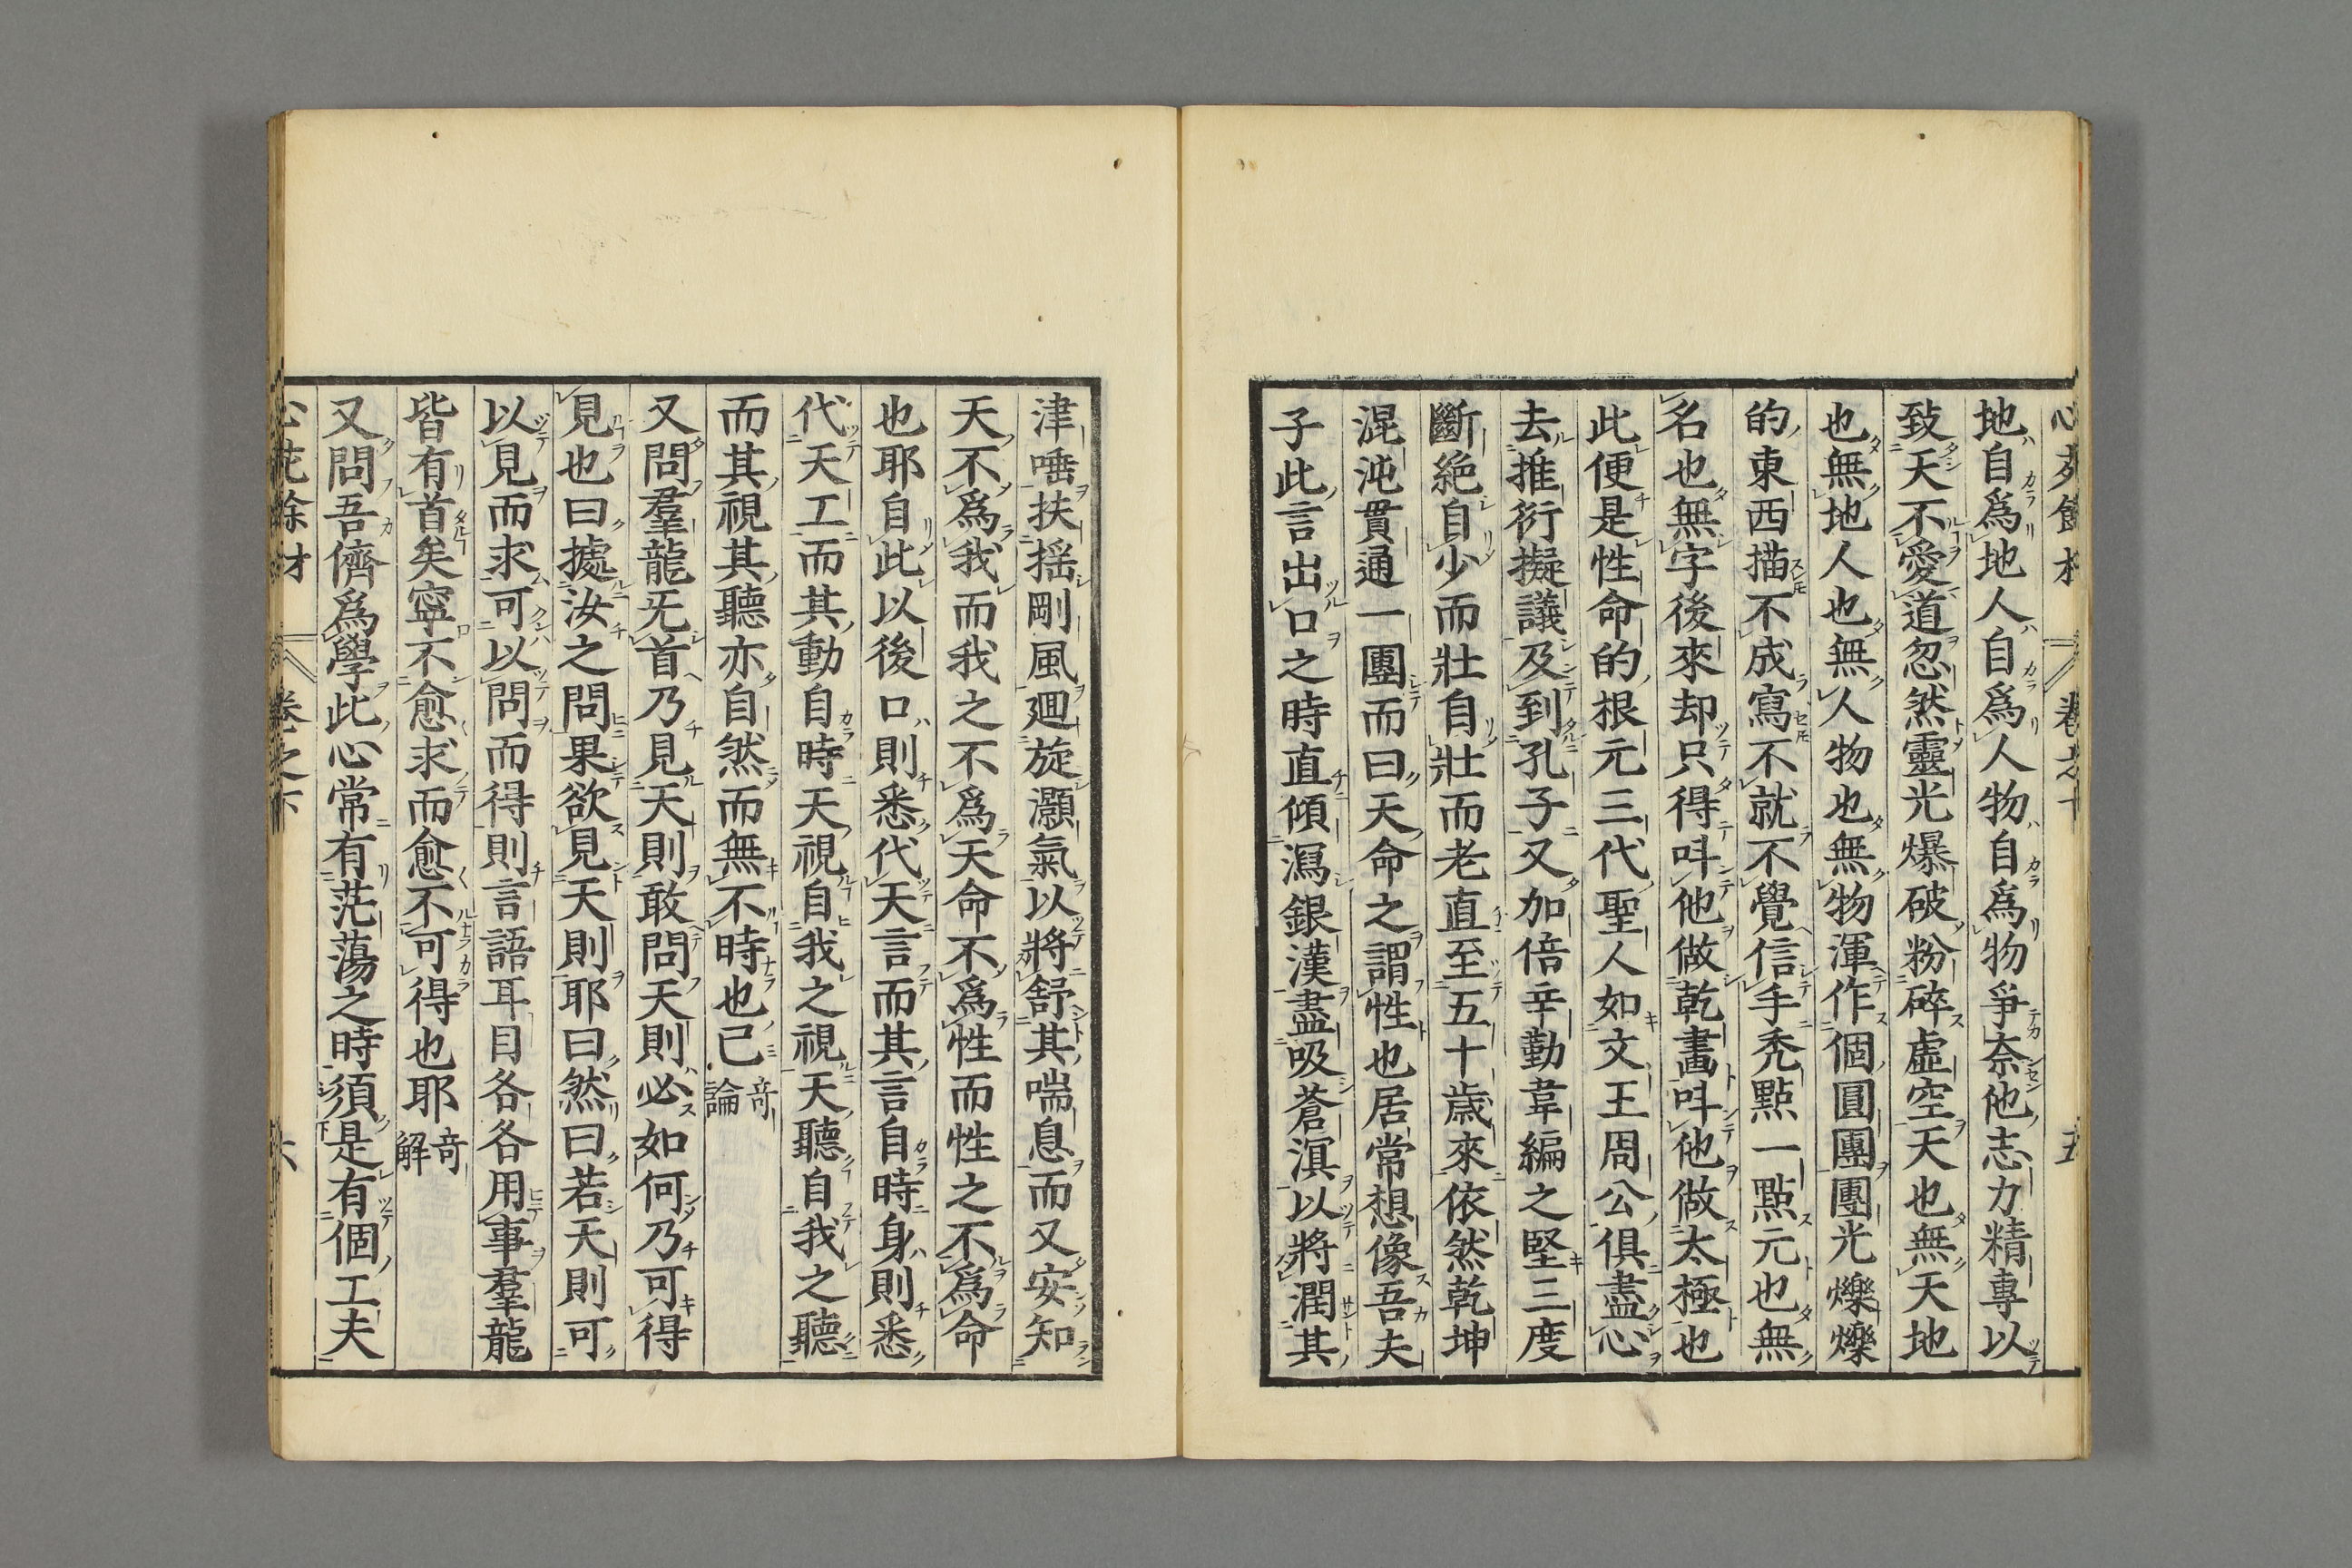 地自爲地人自爲人物自爲物爭奈他志力精專以
致天不愛道忽然靈光爆破粉碎虛空天也無天地
也無地人也無人物也無物渾作個圓團團光爍爍
的東西描不成寫不就不覺信手禿點一點元也無
名也無字後來却只得呌他做乾畫呌他做太極也
此便是性命的根元三代聖人如文王周公俱盡心
去推衍擬議及到孔子又加倍辛勤韋編之堅三度
斷絶自少而壯自壯而老直至五十歲來依然乾坤
混沌貫通一團而曰天命之謂性也居常想像吾夫
子此言出口之時直傾瀉銀漢盡吸蒼溟以將潤其
津唾扶搖剛風廻旋灝氣以將舒其喘息而又安知
天不爲我而我之不爲天命不爲性而性之不爲命
也耶自此以後口則悉代天言而其言自時身則悉
代天工而其動自時天視自我之視天聽自我之聽
而其視其聽亦自然而無不時也已 奇論
又問羣龍旡首乃見天則敢問天則必如何乃可得
見也曰據汝之問果欲見天則耶曰然曰若天則可
以見而求可以問而得則言語耳目各各用事羣龍
皆有首矣寧不愈求而愈不可得也耶 奇解
又問吾儕爲學此心常有茫蕩之時須是有個工夫
心花餘材 卷之下 六